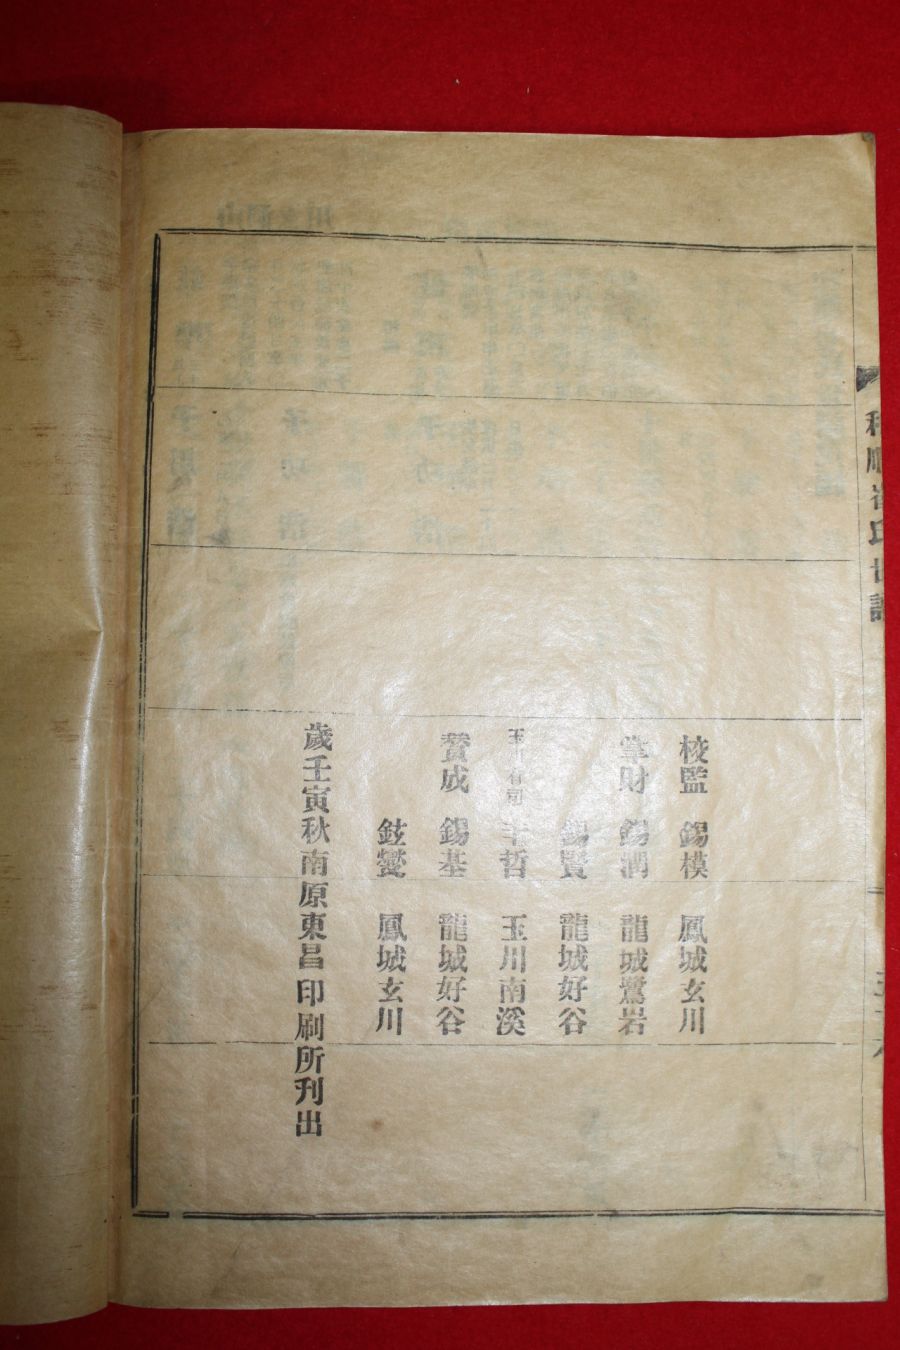 和順崔氏世譜
校監 錫模 鳳城玄川
掌財 錫潤 龍城鷺岩
錫賢 龍城好谷
玉川有司 哲 玉川南溪
賛成 錫基 龍城好谷
鉉燮 鳳城玄川
歲壬寅秋南原東昌印刷所刋出